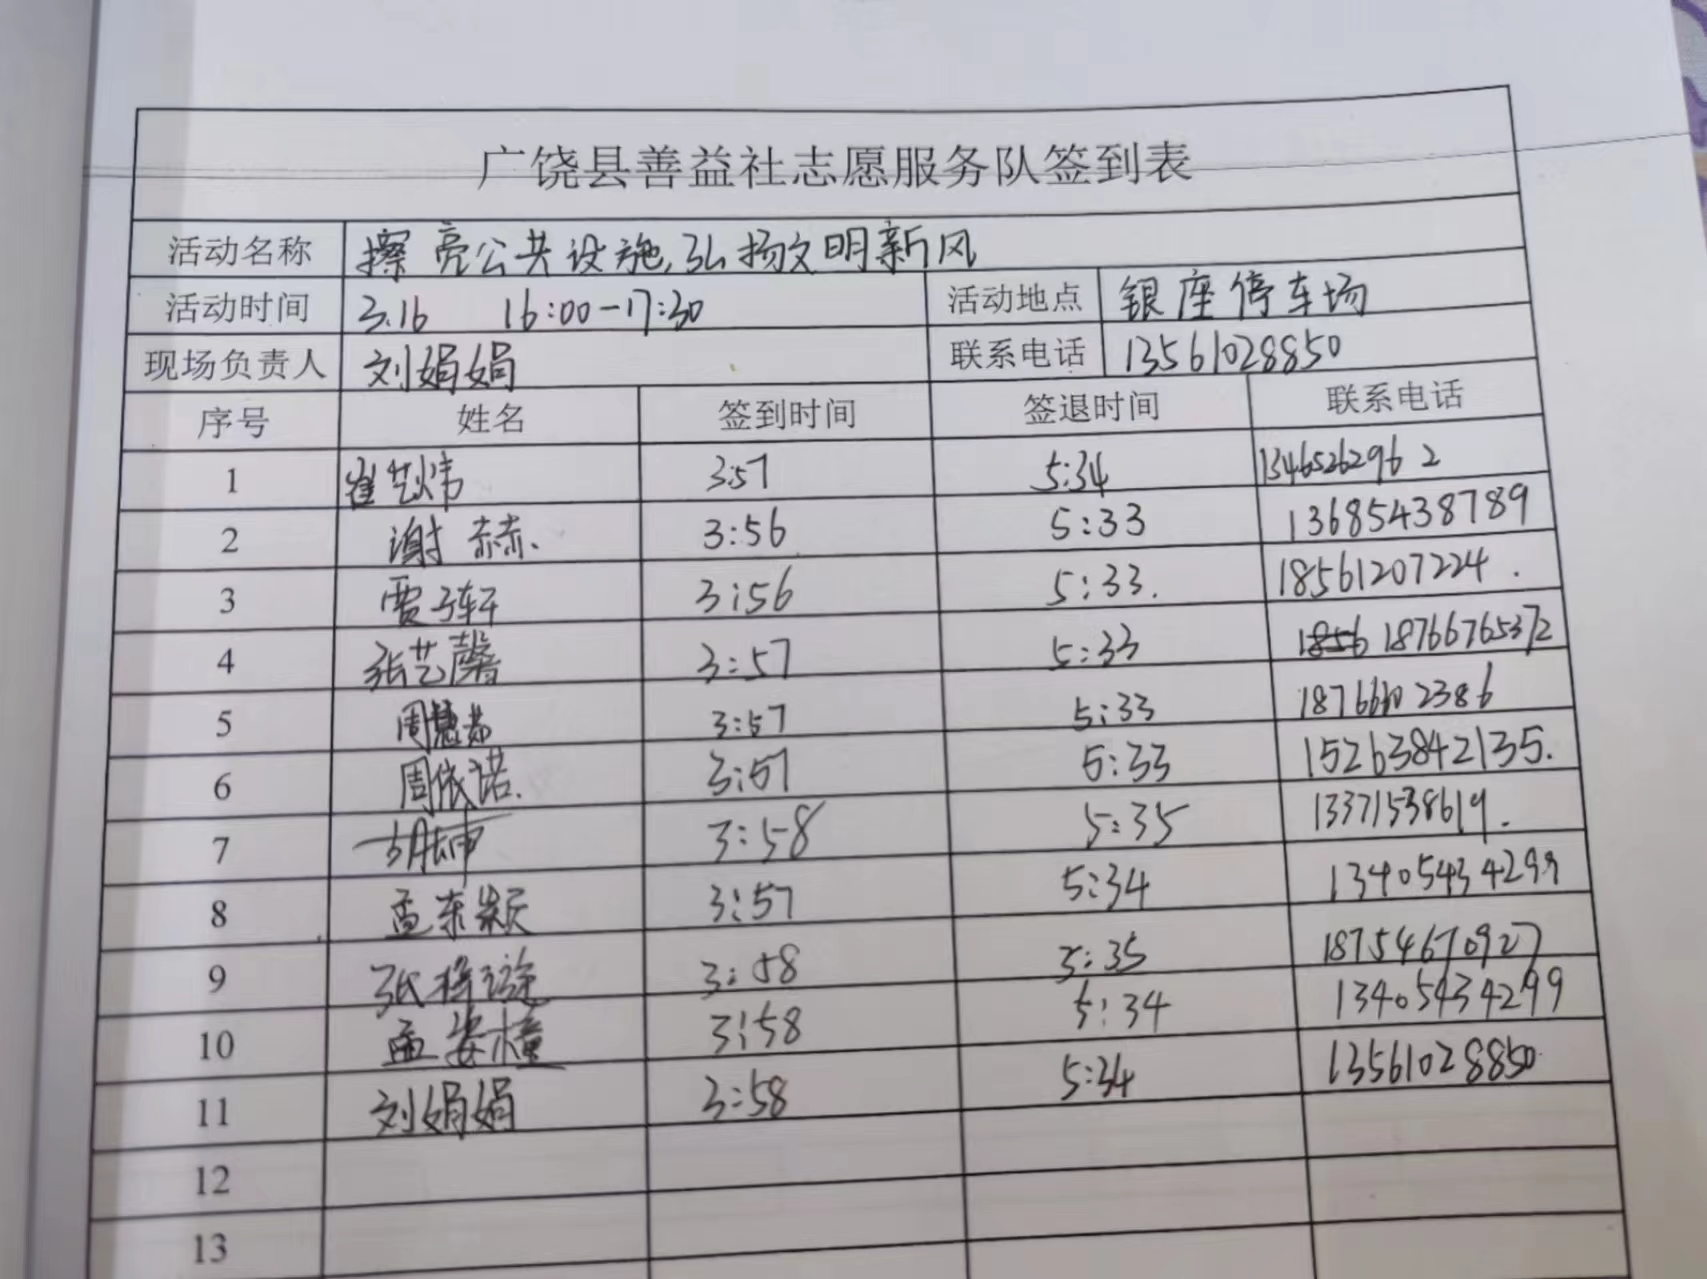 广饶县善益社志愿服务队签到表
活动名称 擦亮公共设施,弘扬文明新风
活动时间 3.16 16:00-17:30 活动地点 银座停车场
现场负责人 刘娟娟 联系电话 13561028850
序号 姓名 签到时间 签退时间 联系电话
1 崔艺炜 3:57 5:34 13465262962
2 谢赫. 3:56 5:33 13685438789
3 贾子轩 3:56 5:33. 18561207224.
4 张艺馨 3:57 5:33 1856 18766765372
5 周慧茹 3:57 5:33 18766102386
6 周依诺. 3:57 5:33 15263842135.
7 胡坤 3:58 5:35 13371538619.
8 孟东颖 3:57 5:34 13405434299
9 张梓璇 3:58 5:35 18754670927
10 孟安橦 3:58 5:34 13405434299
11 刘娟娟 3:58 5:34 13561028850
12
13